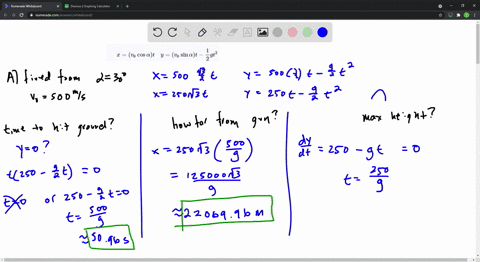 Numerade Whiteboard
Desmos | Graphing Calculator
numerade.com/whiteboard/
x = (v₀ cos α)t   y = (v₀ sin α)t − 1/2 gt²
A) fired from α=30°
v₀ = 500 m/s
x = 500 √3/2 t
x = 250√3 t
y = 500(1/2) t − g/2 t²
y = 250t − g/2 t²
time to hit ground?
y=0?
t(250 − g/2 t) = 0
t=0 or 250 − g/2 t=0
t = 500/g
≈ 50.96 s
how far from gun?
x = 250√3 (500/g)
= 125000√3/g
≈ 22069.96 m
max height?
dy/dt = 250 − gt = 0
t = 250/g